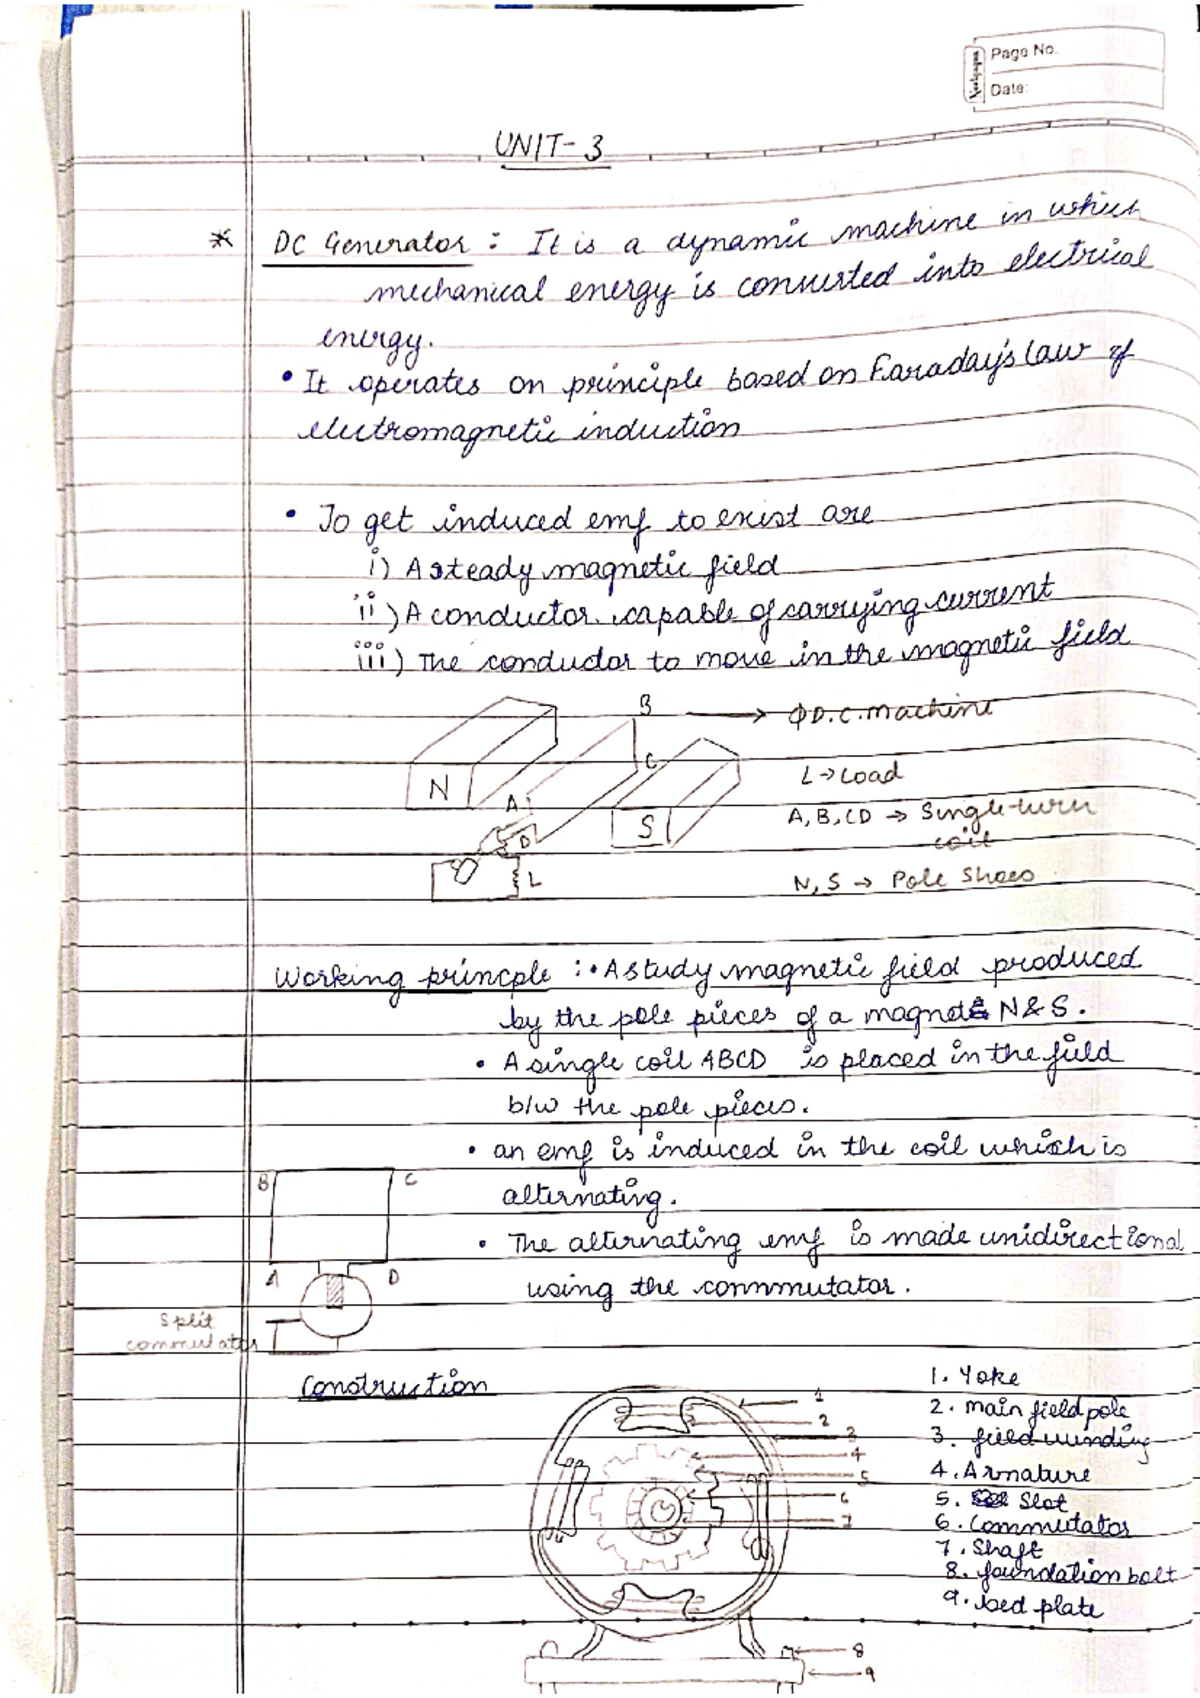 Page No.
Date:
UNIT-3
* DC Generator : It is a dynamic machine in which
mechanical energy is converted into electrical
energy.
• It operates on principle based on Faraday's law of
electromagnetic induction
• To get induced emf to exist are
i) A steady magnetic field
ii) A conductor capable of carrying current
iii) The conductor to move in the magnetic field
B → φ D.C. Machine
C
L → Load
N
A
A, B, CD → Single turn
coil
S
D
L
N, S → Pole Shoes
Working princple : • A study magnetic field produced
by the pole pieces of a magnet N & S.
• A single coil ABCD is placed in the field
b/w the pole pieces.
• an emf is induced in the coil which is
alternating.
• The alternating emf is made unidirectional
using the commutator.
B C
A D
Split
commutator
Construction
1. Yoke
2. main field pole
3. field winding
4. Armature
5. Slot
6. Commutator
7. Shaft
8. foundation bolt
9. bed plate
1
2
3
4
5
6
7
8
9